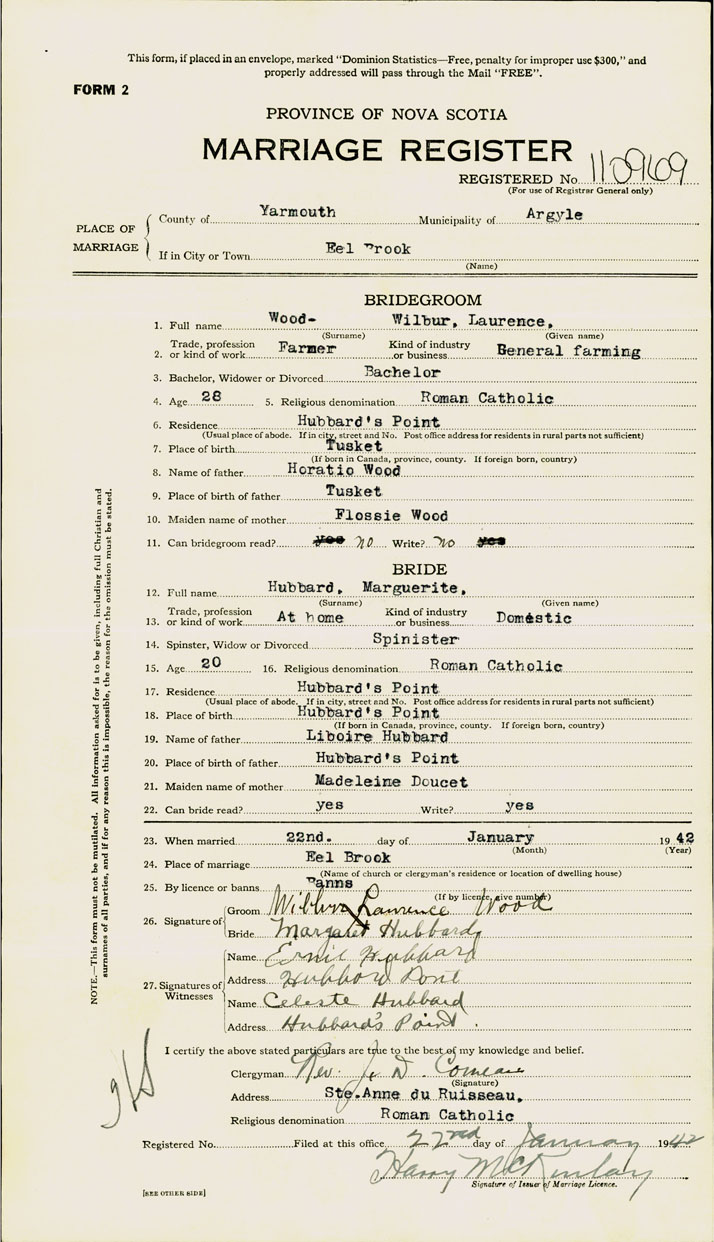 This form, if placed in an envelope, marked "Dominion Statistics—Free, penalty for improper use $300," and
properly addressed will pass through the Mail "FREE".
FORM 2
PROVINCE OF NOVA SCOTIA
MARRIAGE REGISTER
REGISTERED No. 1109609
(For use of Registrar General only)
PLACE OF MARRIAGE
County of Yarmouth Municipality of Argyle
If in City or Town Eel Brook
(Name)
BRIDEGROOM
1. Full name Wood- Wilbur, Laurence,
(Surname) (Given name)
2. Trade, profession or kind of work Farmer Kind of industry or business General farming
3. Bachelor, Widower or Divorced Bachelor
4. Age 28 5. Religious denomination Roman Catholic
6. Residence Hubbard's Point
(Usual place of abode. If in city, street and No. Post office address for residents in rural parts not sufficient)
7. Place of birth Tusket
(If born in Canada, province, county. If foreign born, country)
8. Name of father Horatio Wood
9. Place of birth of father Tusket
10. Maiden name of mother Flossie Wood
11. Can bridegroom read? yes no Write? no yes
BRIDE
12. Full name Hubbard, Marguerite,
(Surname) (Given name)
13. Trade, profession or kind of work At home Kind of industry or business Domestic
14. Spinster, Widow or Divorced Spinister
15. Age 20 16. Religious denomination Roman Catholic
17. Residence Hubbard's Point
(Usual place of abode. If in city, street and No. Post office address for residents in rural parts not sufficient)
18. Place of birth Hubbard's Point
(If born in Canada, province, county. If foreign born, country)
19. Name of father Liboire Hubbard
20. Place of birth of father Hubbard's Point
21. Maiden name of mother Madeleine Doucet
22. Can bride read? yes Write? yes
23. When married 22nd. day of January 1942
(Month) (Year)
24. Place of marriage Eel Brook
(Name of church or clergyman's residence or location of dwelling house)
25. By licence or banns Banns
(If by licence, give number)
26. Signature of
Groom Wilbur Lawrence Wood
Bride Margaret Hubbard
27. Signatures of Witnesses
Name Ernil Hubbard
Address Hubbord Pont
Name Celeste Hubbard
Address Hubbard's Point.
I certify the above stated particulars are true to the best of my knowledge and belief.
Clergyman Rev. J. D. Comeau
(Signature)
Address Ste.Anne du Ruisseau,
Religious denomination Roman Catholic
Registered No. Filed at this office 22nd day of January 1942
Harry McKinlay
Signature of Issuer of Marriage Licence.
[SEE OTHER SIDE]
NOTE.—This form must not be mutilated. All information asked for is to be given, including full Christian and
surnames of all parties, and if for any reason this is impossible, the reason for the omission must be stated.